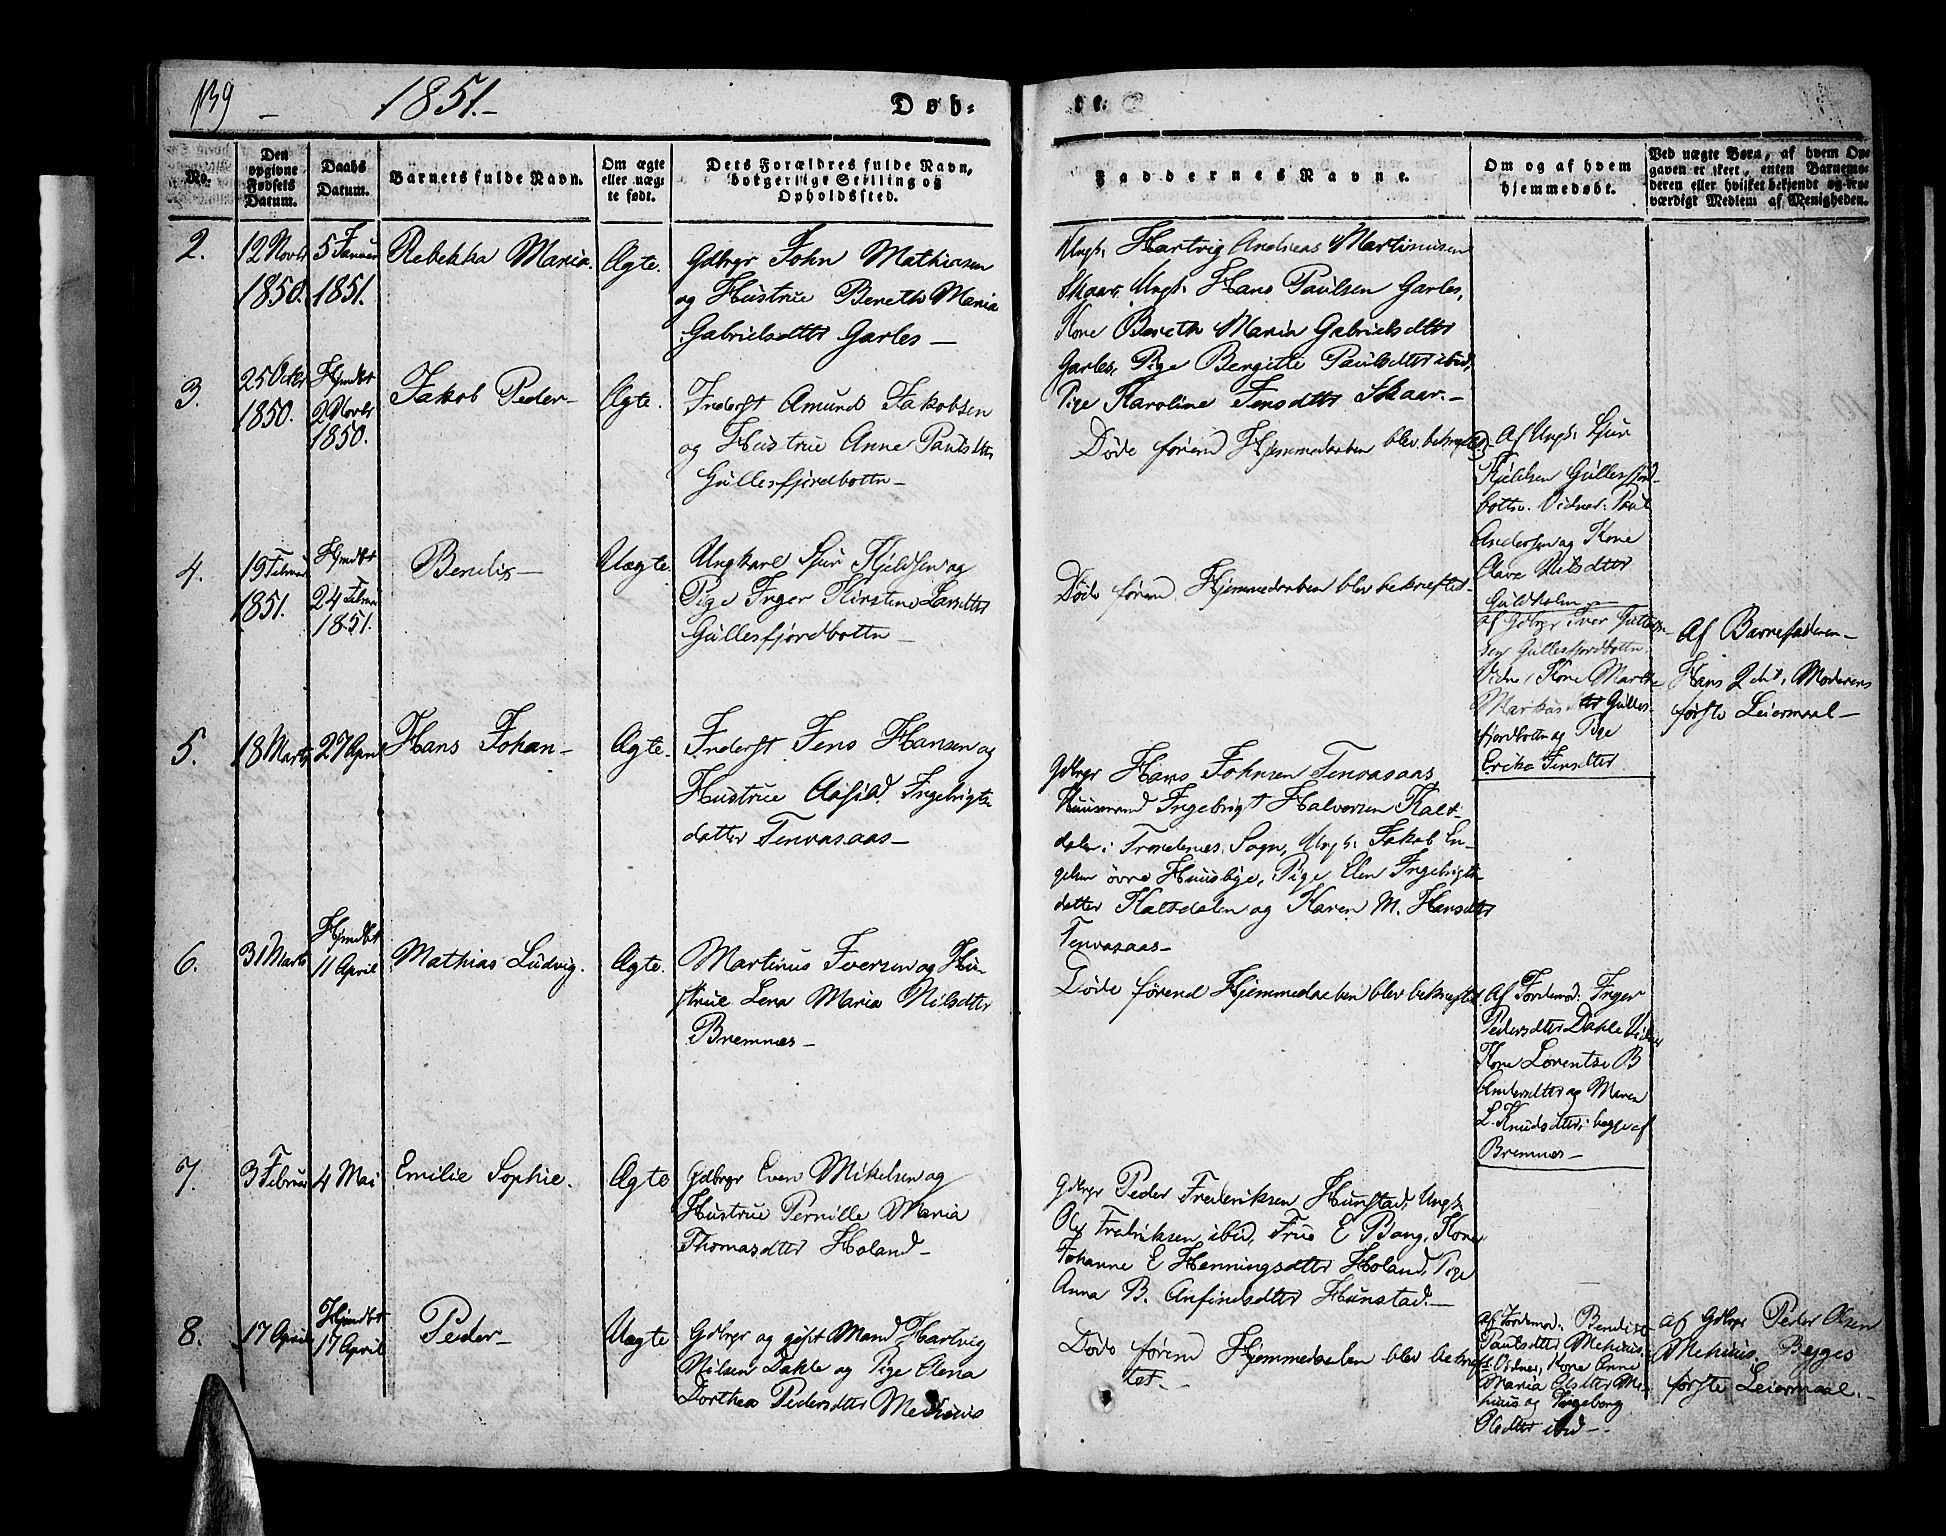 139 1851.- Døb-
te.
No.
Den opgivne Fødsels Datum.
Daabs Datum.
Barnets fulde Navn.
Om ægte eller uægte født.
Dets Forældres fulde Navn, borgerlige Stilling og Opholdssted.
Faddernes Navne.
Om og af hvem hjemmedøbt.
Ved uægte Børn, af hvem Opgaven er skeet, enten Barnemoderen eller hvilket bekjendt og troværdigt Medlem af Menigheden.
2.
12 Novbr
1850.
5 Januar
1851.
Rebekka Maria.
Ægte.
Gdbrgr John Mathisen
og Hustrue Bereth Maria
Gabrielsdttr Garles —
Ungk. Hartvig Andreas Martinusen
Skaar. Ungk. Hans Paulsen Garles,
Kone Bereth Maria Gabrielsdttr
Garles, Pige Bergithe Paulsdttr ibid,
Pige Karoline Jensdttr Skaar.—
3
25 Octbr
1850.
Hjmdbt
2 Novbr
1850.
Jakob Peder—
Ægte.
Inderst Amund Jakobsen
og Hustrue Anne Paulsdttr
Gullesfjordbottn—
Døde førend Hjemmedaaben blev bekræftet.
Af Ungk. Sjur
Kjeldsen Gullesfjord-
bottn. Vidner: Paul
Andersen og Kone
Olava Nilsdttr
Guldholm—
4.
19 Februar
1851.
Hjmdbt
24 Februar
1851.
Bendix—
Uægte.
Ungkarl Sjur Kjeldsen og
Pige Inger Kirstine Larsdttr
Gullesfjordbottn—
Døde førend Hjemmedaaben blev bekræftet—
af Gdbrgr Iver
Gullesfjordbottn
Vidner, Kone Marthe
Markusdttr Gulles-
fjordbottn og Pige
Erika Jensdttr
Af Barnefaderen—
Hans 2det, Moderens
første Leiermaal—
5.
18 Marts
27 April
Hans Johan—
Ægte.
Inderst Jens Hansen og
Hustrue Aasild Ingebrigts-
datter Tenvasaas—
Gdbrgr Hans Johnsen Tenvasaas,
Huusmand Ingebrigt Halvorsen Kalt-
dalen i Trondenes Sogn, Ungk. Jakob En-
gelsen øvre Huusbye, Pige Elen Ingebrigts-
datter Kaltdalen og Karen M. Hansdttr
Tenvasaas—
6.
31 Marts
Hjmdbt
11 April
Mathias Ludvig.
Ægte.
Martinus Iversen og Hu-
strue Lena Maria Nilsdttr
Bremnes—
Døde førend Hjemmedaaben blev bekræftet
Af Jordemod: Inger
Pedersdttr Dahle Vidner
Kone Lorentse B
Andersdttr og Maren
L. Knudsdttr, begge af
Bremnes—
7.
3 Februar
4 Mai
Emilie Sophie.
Ægte
Gdbrgr Even Mikelsen og
Hustrue Pernille Maria
Thomasdttr Holand—
Gdbrgr Peder Frederiksen Hunstad, Ungk.
Ole Fredriksen ibid, Frue E Bang, Kone
Johanne E Henningsdttr Holand, Pige
Anna B. Anfindsdttr Hunstad.—
8.
17 April
Hjmdbt
17 April
Peder—
Uægte
Gdbrgr og gift Mand Hartvig
Nilsen Dahle og Pige Elena
Dorthea Pedersdttr Melhuus
Døde førend Hjemmedaaben blev bekræf-
tet—
Af Jordemod: Bendikte
Paulsdttr Melhuus.
Vidner, Kone Anne
Maria Olsdttr Mel-
huus og Ingeborg
Olsdttr ibid—
af Gdbrgr Peder Olsen
Melhuus, Begges
første Leiermaal.—